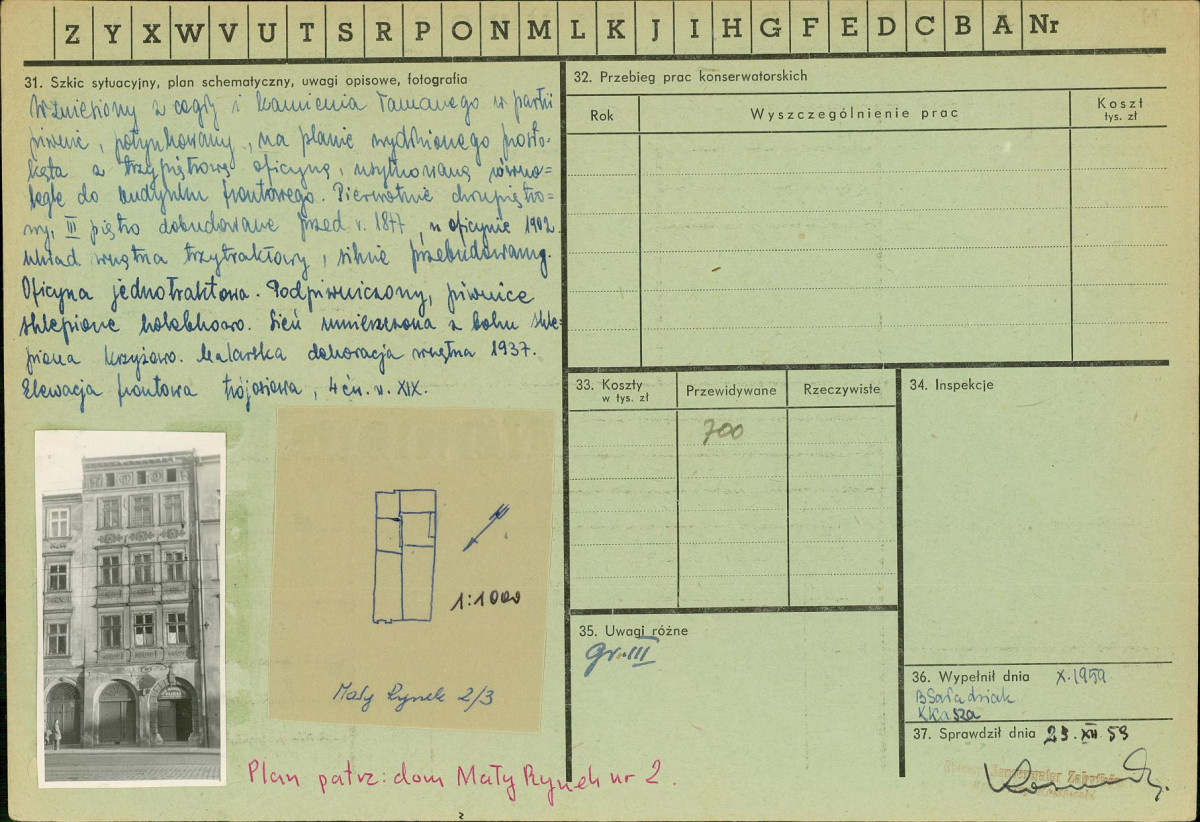 Z Y X W V U T S R P O N M L K J I H G F E D C B A Nr
31. Szkic sytuacyjny, plan schematyczny, uwagi opisowe, fotografia
Wzniesiony z cegły i kamienia łamanego w partii
piwnic, potynkowany, na planie wydłużonego prosto-
kąta z trzypiętrową oficyną, usytuowaną równo=
legle do budynku frontowego. Pierwotnie dwupiętro=
wy, III piętro dobudowane przed r. 1877, w oficynie 1902.
Układ wnętrza trzytraktowy, silnie przebudowany.
Oficyna jednotraktowa. Podpiwniczony, piwnice
sklepione kolebkowo. Sień umieszczona z boku skle-
piona krzyżowo. Malarska dekoracja wnętrza 1937.
Elewacja frontowa trójosiowa, 4 ćw. w. XIX.
1:1000
Mały Rynek 2/3
Plan patrz: dom Mały Rynek nr 2.
32. Przebieg prac konserwatorskich
Rok
Wyszczególnienie prac
Koszt
tys. zł
33. Koszty
w tys. zł
Przewidywane
Rzeczywiste
700
34. Inspekcje
35. Uwagi różne
gr. III
36. Wypełnił dnia X.1959
K Kasza
37. Sprawdził dnia 23.XII.59
Konserwator